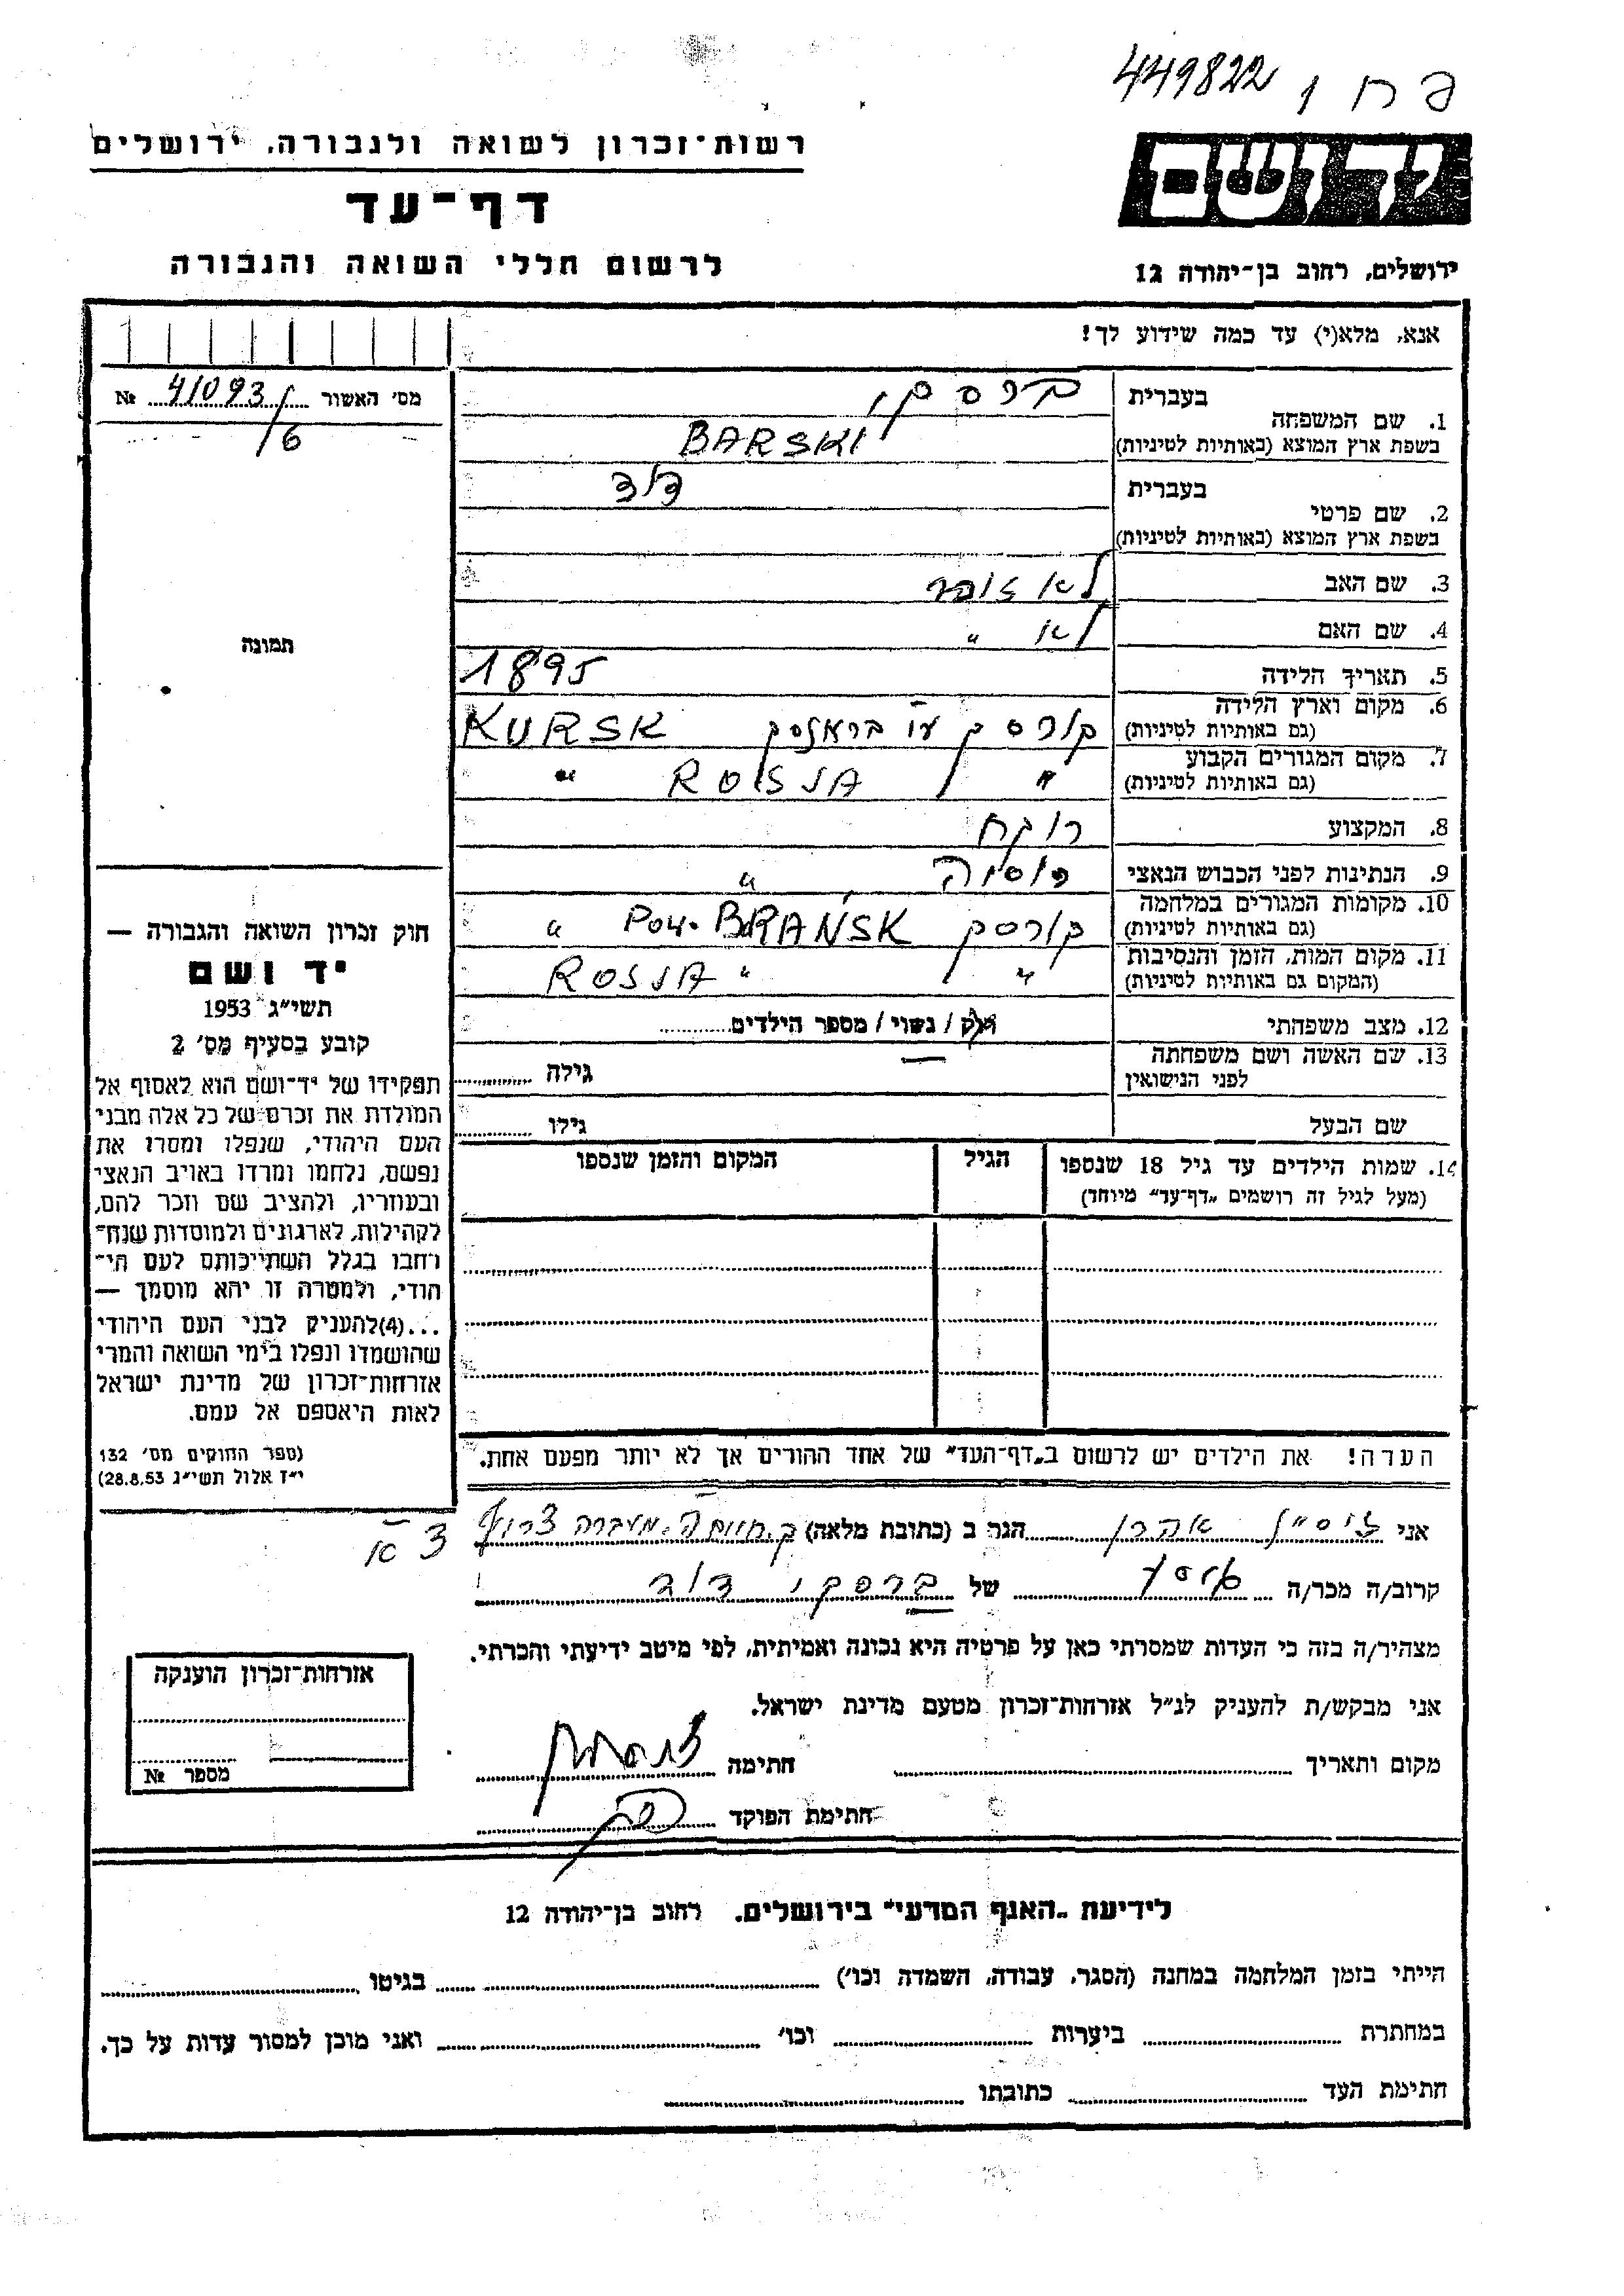 449822 ברו
רשות־זכרון לשואה ולגבורה, ירושלים
דף־עד
לרשום חללי השואה והגבורה
יד ושם
ירושלים, רחוב בן־יהודה 12
אנא, מלא(י) עד כמה שידוע לך!
מס׳ האשור 41093/ №
/6
1. שם המשפחה
בעברית ברסקי
בשפת ארץ המוצא (באותיות לטיניות) BARSKI
2. שם פרטי
בעברית דוד
בשפת ארץ המוצא (באותיות לטיניות)
3. שם האב לא זוכר
4. שם האם לא "
5. תאריך הלידה 1895
6. מקום וארץ הלידה
(גם באותיות לטיניות) קורסק ע"י בראנסק KURSK
7. מקום המגורים הקבוע
(גם באותיות לטיניות) " ROSJA "
8. המקצוע רוקח
9. הנתינות לפני הכבוש הנאצי רוסיה "
10. מקומות המגורים במלחמה
(גם באותיות לטיניות) קורסק POW. BRAŃSK "
11. מקום המות, הזמן והנסיבות
(המקום גם באותיות לטיניות) " " ROSJA
12. מצב משפחתי רוק / נשוי / מספר הילדים
13. שם האשה ושם משפחתה
לפני הנישואין — גילה
שם הבעל גילו
14. שמות הילדים עד גיל 18 שנספו
(מעל לגיל זה רושמים „דף־עד” מיוחד)
הגיל
המקום והזמן שנספו
תמונה
חוק זכרון השואה והגבורה —
יד ושם
תשי״ג 1953
קובע בסעיף מס׳ 2
תפקידו של יד־ושם הוא לאסוף אל
המולדת את זכרם של כל אלה מבני
העם היהודי, שנפלו ומסרו את
נפשם, נלחמו ומרדו באויב הנאצי
ובעוזריו, ולהציב שם וזכר להם,
לקהילות, לארגונים ולמוסדות שנח־
רחבו בגלל השתייכותם לעם הי־
הודי, ולמטרה זו יהא מוסמך —
...(4)להעניק לבני העם היהודי
שהושמדו ונפלו בימי השואה והמרי
אזרחות־זכרון של מדינת ישראל
לאות היאספם אל עמם.
(ספר החוקים מס׳ 132
י״ז אלול תשי״ג 28.8.53)
הערה! את הילדים יש לרשום ב„דף־העד” של אחד ההורים אך לא יותר מפעם אחת.
אני זיסמן אהרן הגר ב (כתובת מלאה) מעברה צריף
קרוב/ה מכר/ה של ברסקי דוד
מצהיר/ה בזה כי העדות שמסרתי כאן על פרטיה היא נכונה ואמיתית, לפי מיטב ידיעתי והכרתי.
אני מבקש/ת להעניק לנ״ל אזרחות־זכרון מטעם מדינת ישראל.
מקום ותאריך חתימה זיסמן
חתימת הפוקד
אזרחות־זכרון הוענקה
מספר №
לידיעת „האגף המדעי” בירושלים, רחוב בן־יהודה 12
הייתי בזמן המלחמה במחנה (הסגר, עבודה, השמדה וכו׳) בגיטו
במחתרת ביערות וכו׳ ואני מוכן למסור עדות על כך.
חתימת העד כתובתו